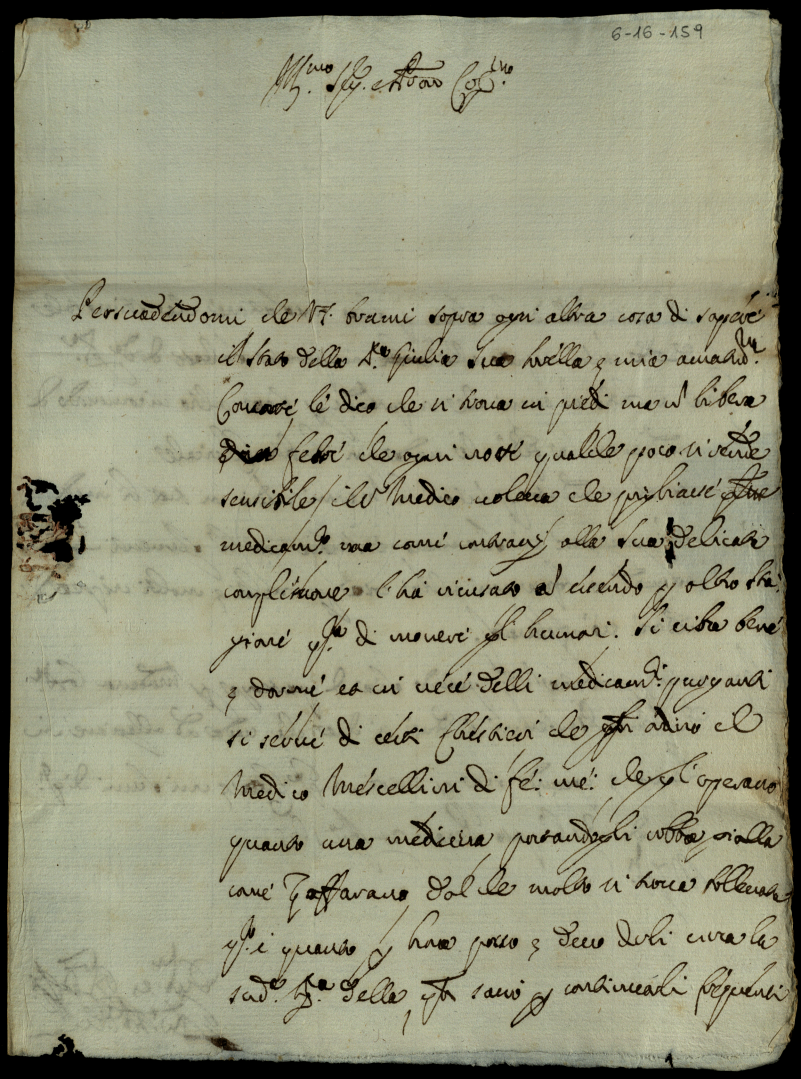 6-16-159
Ill.mo Sig. e Pron Col.mo
Persuadendomi che VS. brami sopra ogni altra cosa di sapere
il stato della S.ra Giulia sua sorella e mia amatis.ma
le dico che si trova in piedi ma libera
febre che ogni notte qualche poco si rende
sensibile il S.r Medico voleva che pigliasse
medicam.ti ma come contrarij alla sua delicata
complessione l'ha ricusato essendo oltre
di movere gl'humori. Si ciba bene
e dorme et in vece delli medicam.ti purganti
si serve di certi Christieri che ordinò il
Medico Mescellini di fe: me: che gl'operano
quanto una medicina portandogli robba gialla
come Zaffarano dal che molto si trova sollevata
quanto hora posso e devo darli circa la
sud.a S.ra della sarò continuarli frequenti